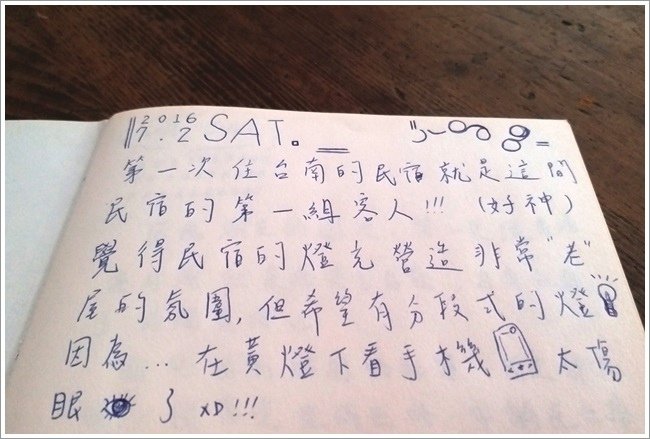 2016
7.2 SAT.
第一次住台南的民宿就是這間
民宿的第一組客人!!! (好神)
覺得民宿的燈光營造非常"老"
屋的氛圍,但希望有分段式的燈
因為... 在黃燈下看手機 太傷
眼 了 XD!!!